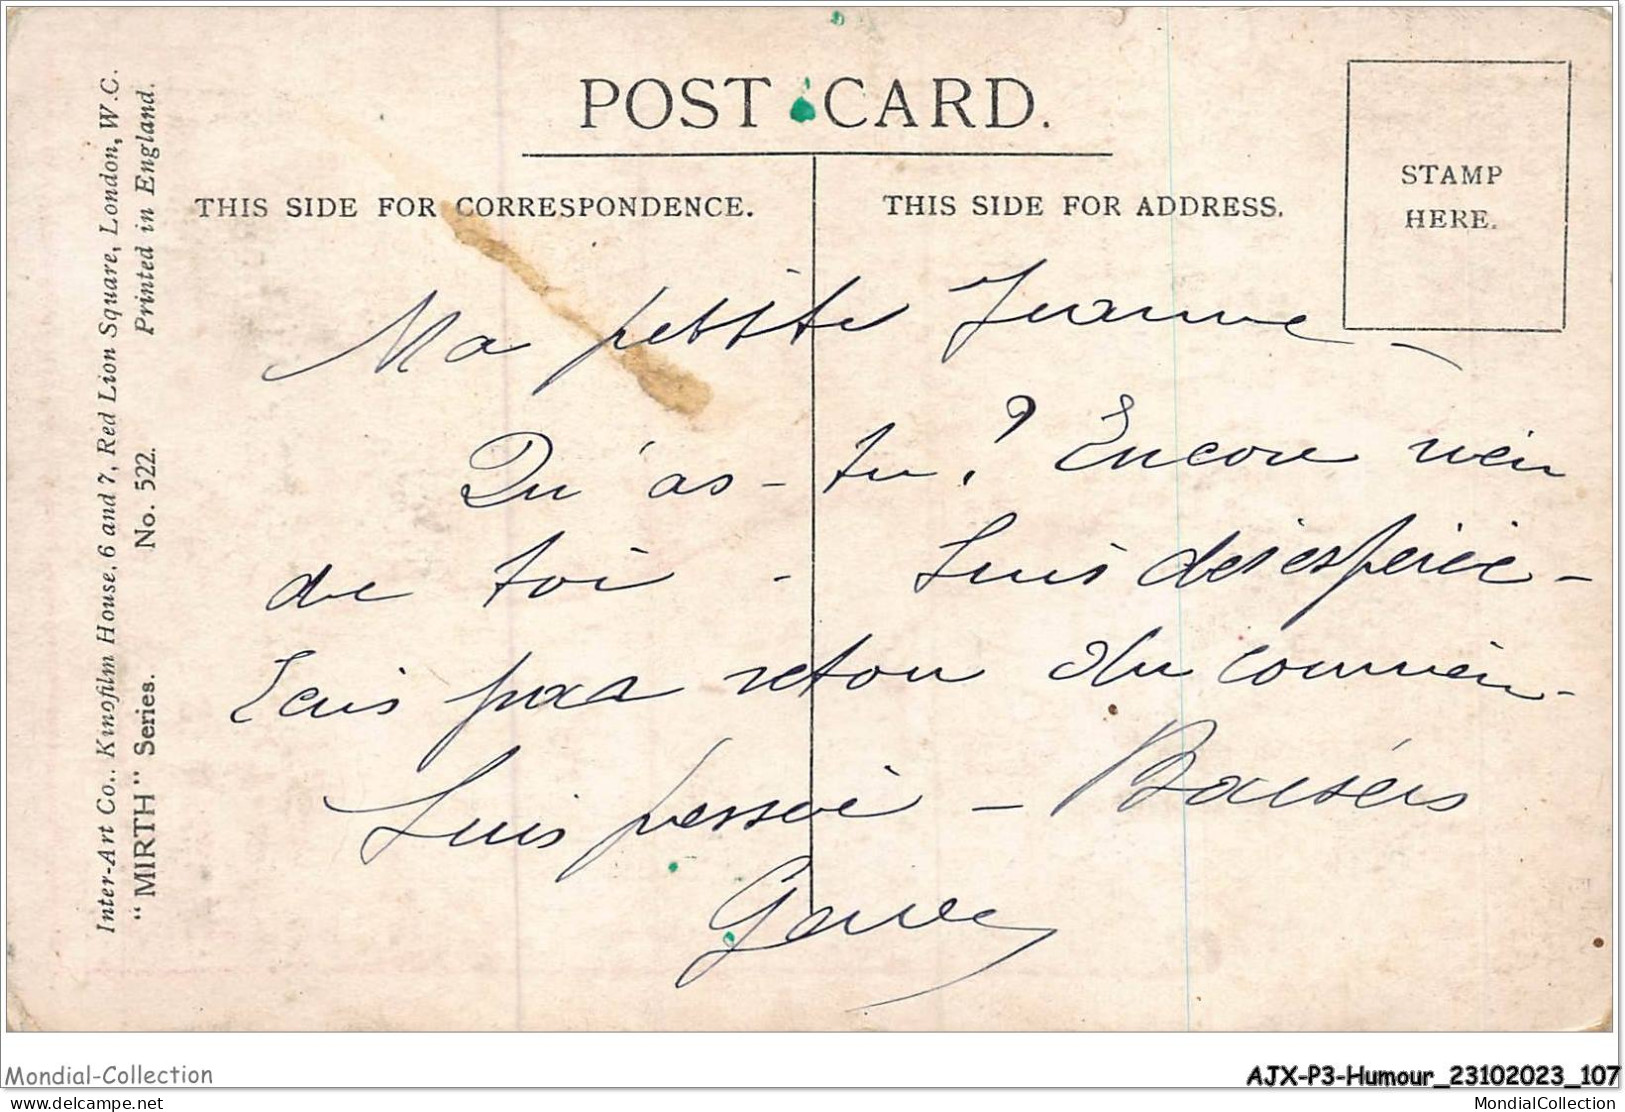 POST CARD.
THIS SIDE FOR CORRESPONDENCE.
THIS SIDE FOR ADDRESS.
STAMP
HERE.
Inter-Art Co., Kinofilm House, 6 and 7, Red Lion Square, London, W.C.
"MIRTH" Series. No. 522. Printed in England.
Ma petite Jeanne -
Qu'as-tu? Encore rien
de toi - Suis désespérée -
Ecris par retour du courrier -
Suis pressée - Baisers
Mondial-Collection
AJX-P3-Humour_23102023_107
delcampe.net
MondialCollection